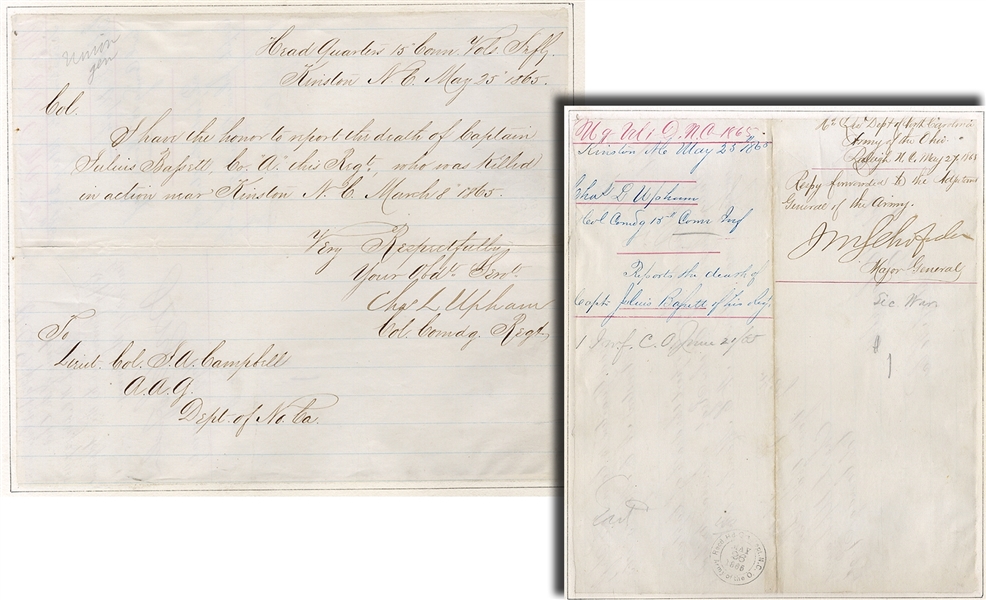 Union
gen
Head Quarters 15 Conn Vols Infty
Kinston N C. May 25' 1865.
Col.
I have the honor to report the death of Captain
Julius Bassett, Co. "A" this Regt. who was killed
in action near Kinston N. C. March 8' 1865.
Very Respectfully
Your Obdt. Servt.
Chas L Upham
Col. Comdg. Regt.
To
Lieut. Col. J. A. Campbell
A. A. G.
Dept. of No. Ca.
Kinston NC May 25 1865
Chas L Upham
Col Comdg 15th Conn Inf
Reports the death of
Capt. Julius Bassett of his Regt
1 Inf. C. O. June 20/65
Hd Qrs Dept of North Carolina
Army of the Ohio
Raleigh N. C. May 27, 1865
Respy forwarded to the Adjutant
General of the Army.
J M Schofield
Major General
Sec War
1